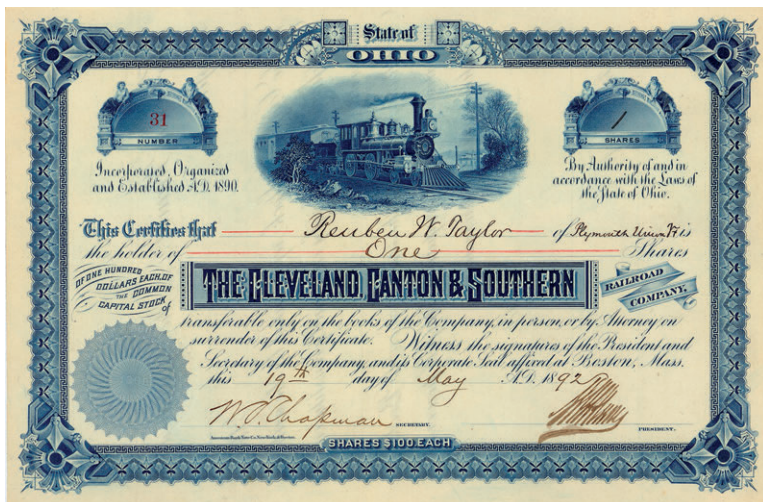 State of
OHIO
31
NUMBER
1
SHARES
Incorporated, Organized
and Established A.D. 1890.
By Authority of and in
accordance with the Laws of
the State of Ohio.
This Certifies that Reuben W. Taylor of Plymouth Union Vt is
the holder of One Shares
OF ONE HUNDRED
DOLLARS EACH, OF
THE COMMON
CAPITAL STOCK
of
THE CLEVELAND, CANTON & SOUTHERN
RAILROAD
COMPANY,
transferable only on the books of the Company, in person, or by Attorney on
surrender of this Certificate. Witness the signatures of the President and
Secretary of the Company, and its Corporate Seal affixed at Boston, Mass.
this 19th day of May A.D. 1892
W. O. Chapman SECRETARY.
PRESIDENT.
American Bank Note Co. New York & Boston.
SHARES $100 EACH